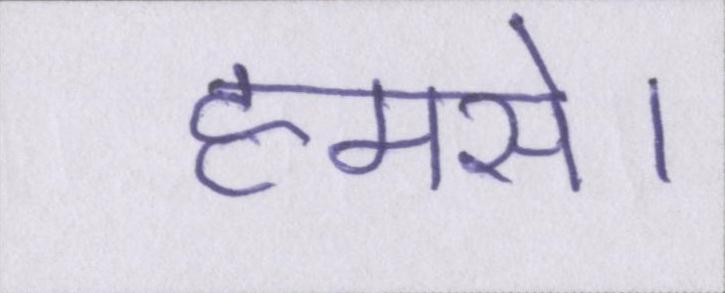 हमसे।